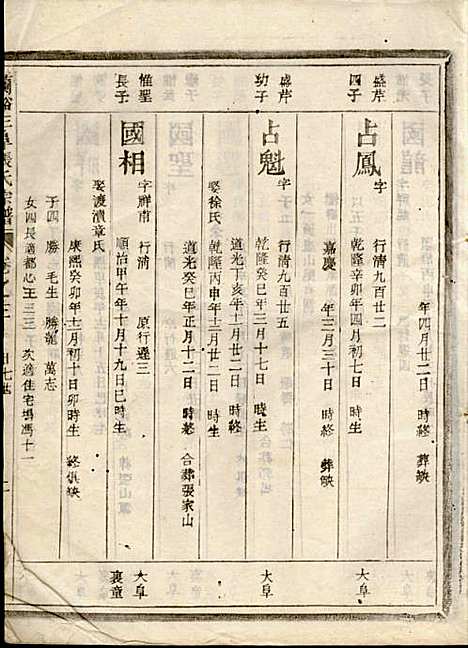 年四月廿二日 葬缺
盛芹
四子
占鳳
字 行清九百廿二
乾隆辛卯年四月初七日 時生
嘉慶 年三月三十日 葬缺
大阜
盛芹
幼子
占魁
字 行清九百廿五
乾隆癸巳年三月十七日 時生
道光丁亥年十一月廿二日 時終
娶徐氏
乾隆丙申年十二月廿二日 時生
道光癸巳年正月十二日 時終 合葬張家山
大阜
惟聖
長子
國相
字祥南 行清 原行遜三
順治甲午年十月十九日巳時生
娶渡瀆章氏
康熙癸卯年十二月初十日卯時生 終俱缺
子四 勝 毛生 勝龍 萬志
女四長適都心王三三子 次適住宅塢馮十一
大阜
裏童
張氏宗譜